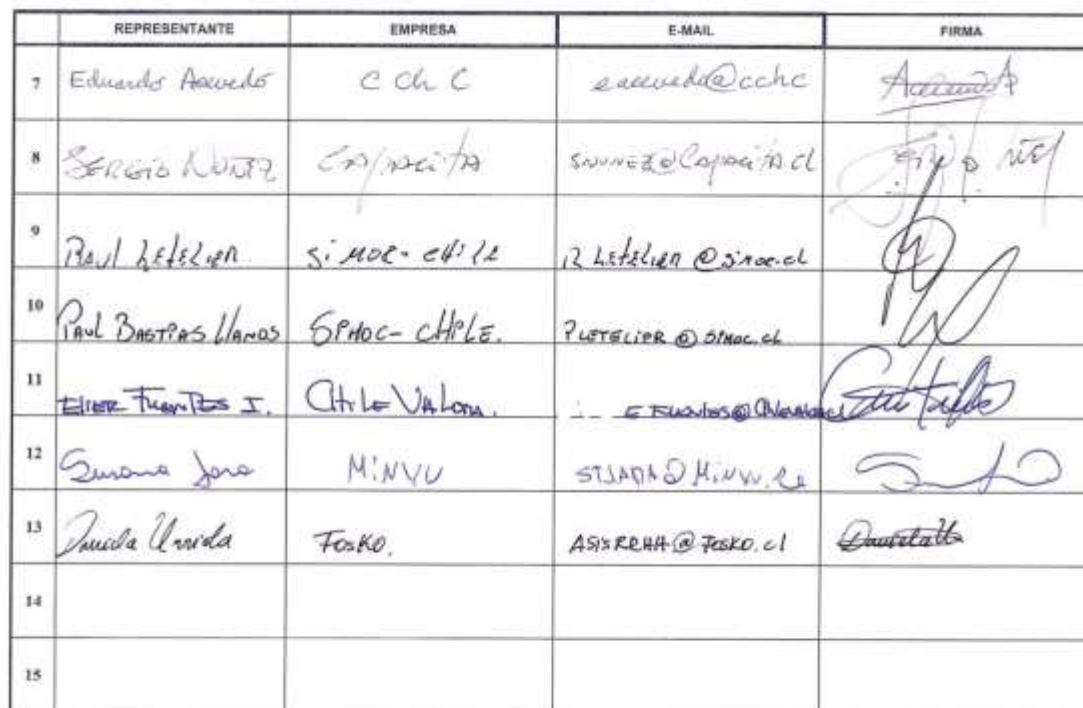 REPRESENTANTE EMPRESA E-MAIL FIRMA
7 Eduardo Acevedo C Ch C eacevedo@cchc
8 SERGIO NUÑEZ CAPACITA SNUNEZ@Capacita.cl
9 RAUL LETELIER SiMOC-CHILE RLETELIER@simoc.cl
10 PAUL BASTIAS LLANOS SIMOC-CHILE. PLETELIER@SIMOC.cl
11 FUENTES I. CHILE VALORA.
12 Susana Jara MINVU
13 Daniela FOSKO. ASISRRHH@FOSKO.cl
14
15